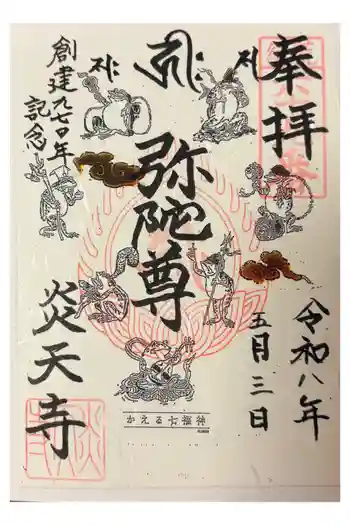 奉拝
令和八年
五月三日
弥陀尊
創建九七〇年
記念
炎天寺
かえる七福神